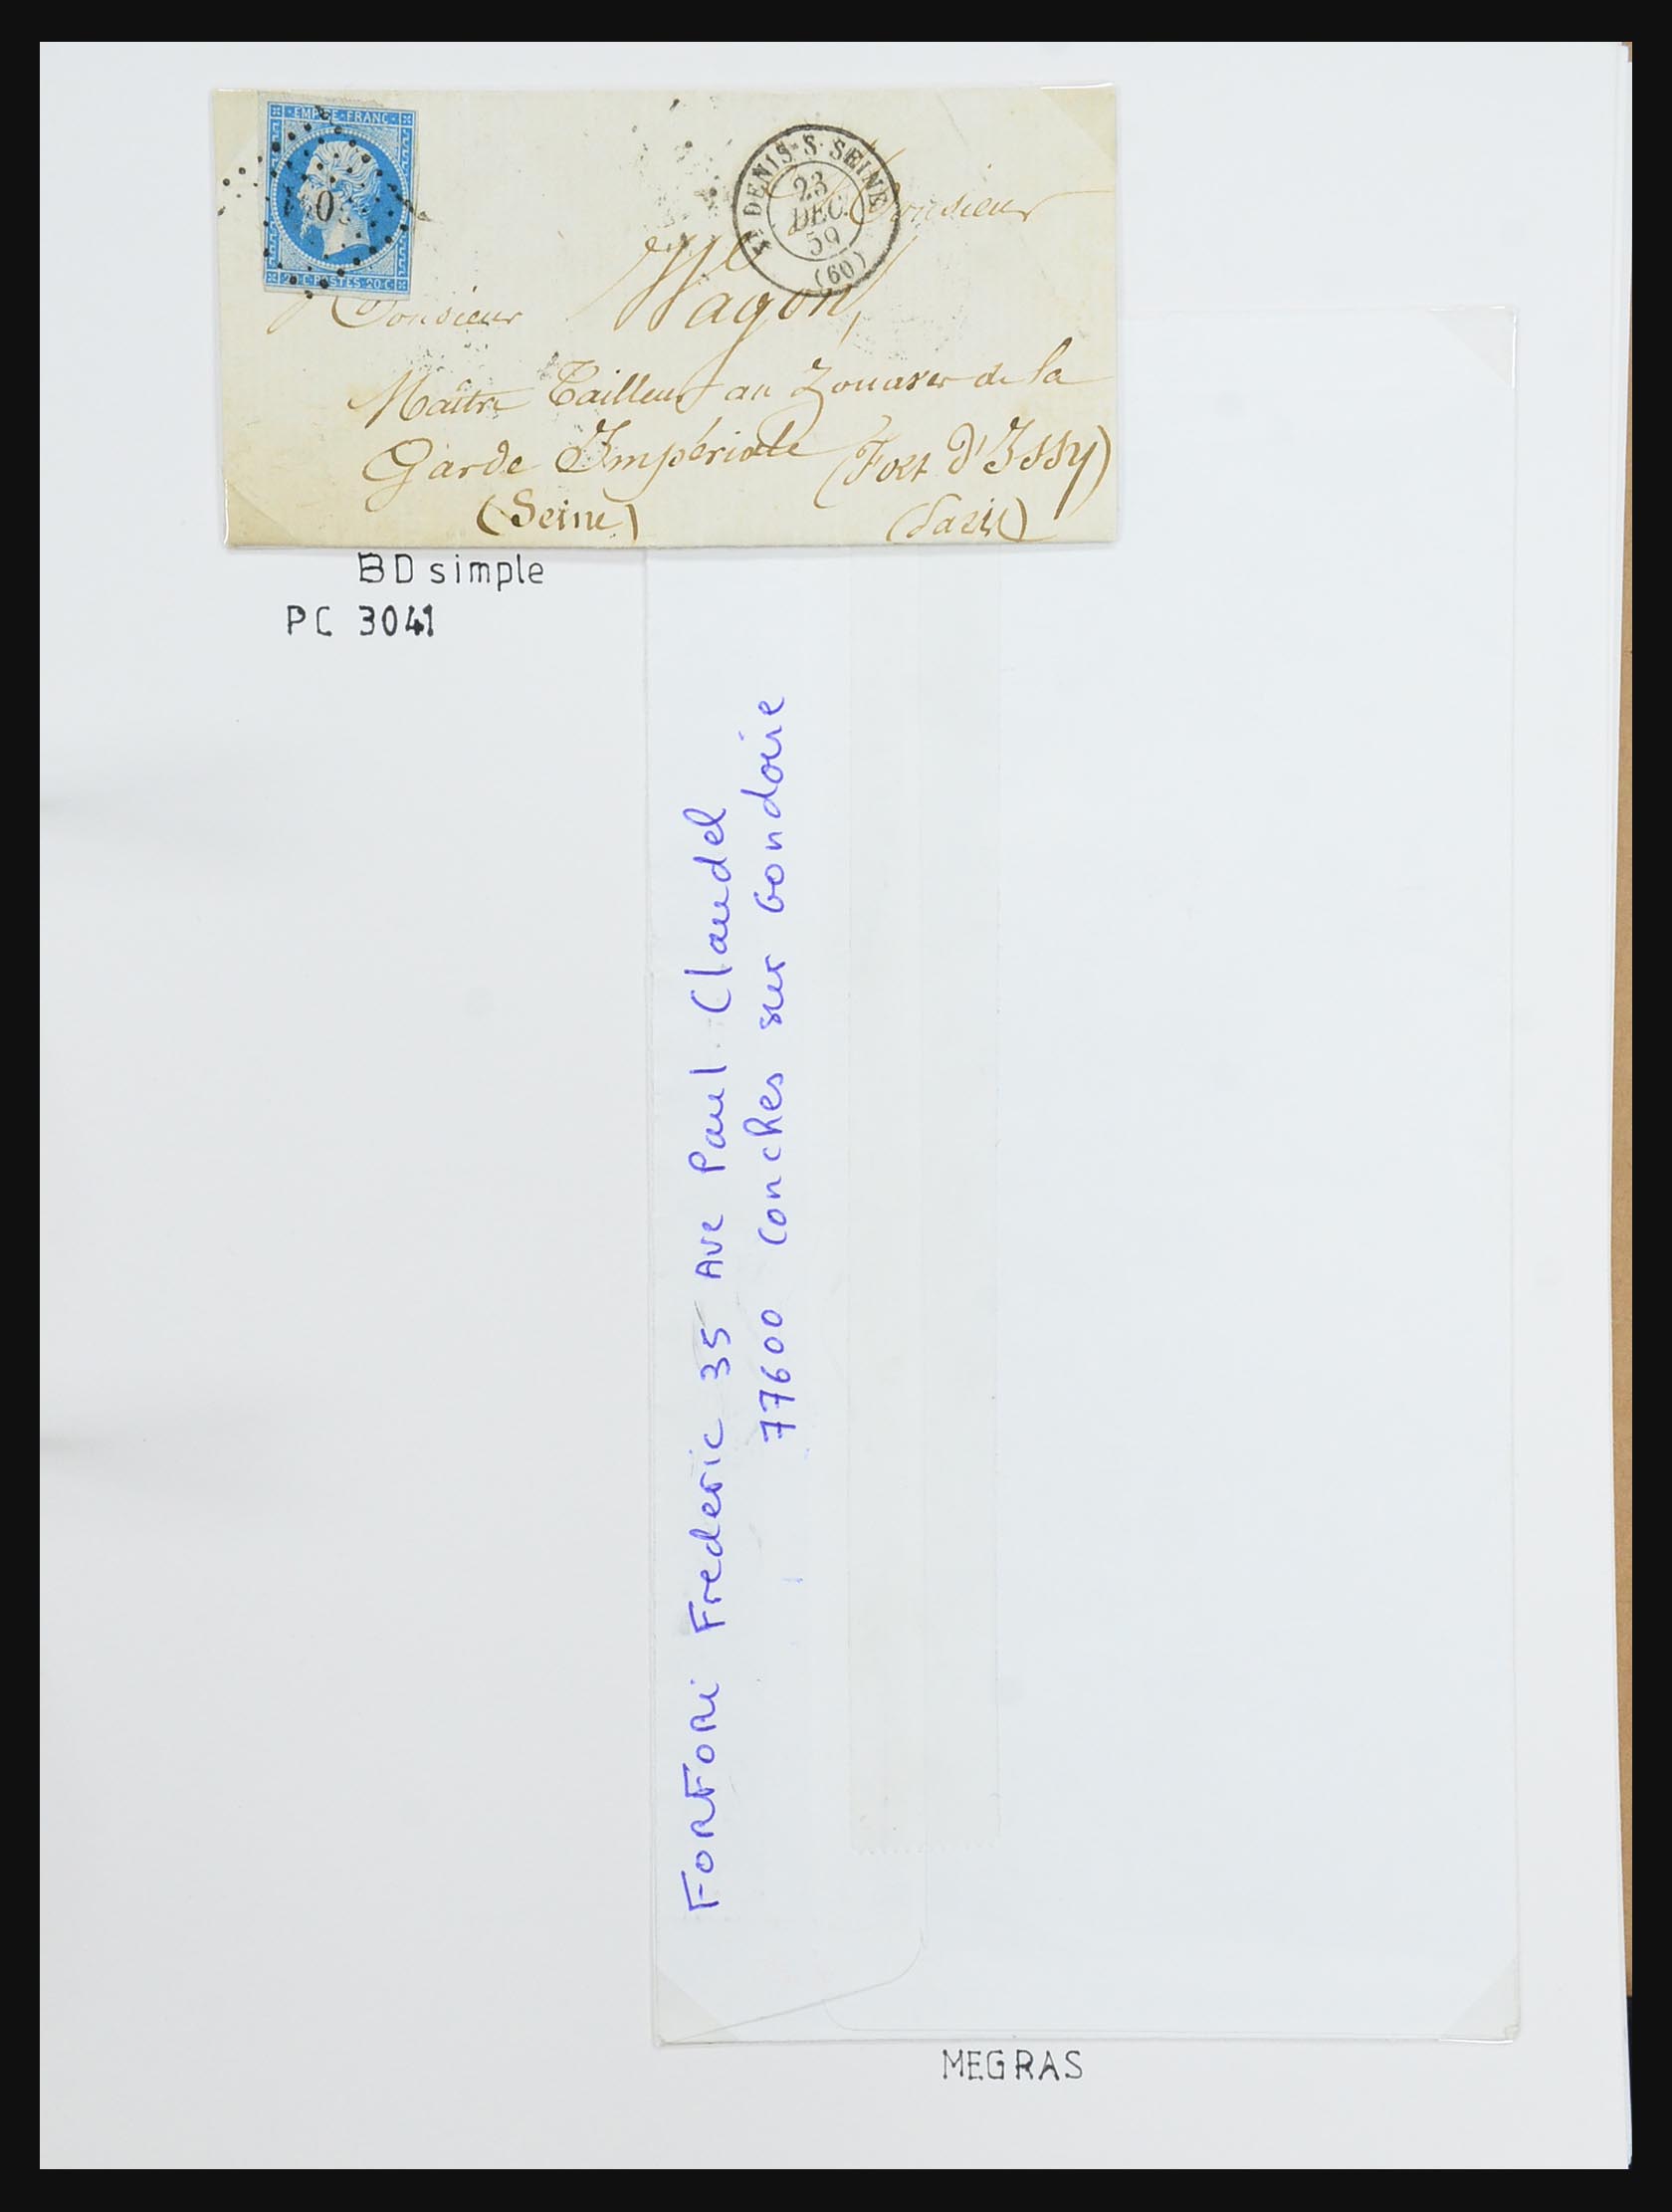 EMPIRE·FRANC·
20·C·POSTES·20·C
ST DENIS-S-SEINE
23
DEC.
59
(60)
Monsieur
Monsieur Wagon,
Maître Tailleur au Zouaves de la
Garde Impériale (Fort d'Issy)
(Seine) (Paris)
BD simple
PC 3041
FORFORI Frederic 35 Ave Paul Claudel
77600 Conches sur Gondoire
MEGRAS